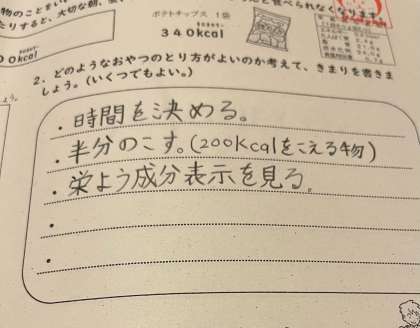 物のことをい
たりすると、大切な朝、昼、
べられなくなります。
ポテトチップス 1袋
340kcal
00kcal
2. どのようなおやつのとり方がよいのか考えて、きまりを書きま
しょう。(いくつでもよい。)
・時間を決める。
・半分のこす。(200Kcalをこえる物)
・栄よう成分表示を見る。
・
・